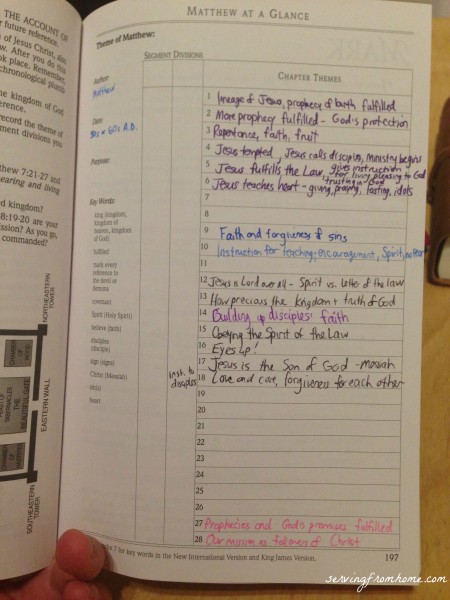 THE ACCOUNT OF
future reference.
of Jesus Christ, also
After you do this
took place. Remember
chronological
kingdom of God
record the theme of
segment divisions you
Matthew 7:21-27 and
hearing and living
kingdom?
8:19-20 are your
mission? As you go,
commanded?
NORTHEASTERN TOWER
EASTERN WALL
THE BEAUTIFUL GATE
SOUTHEASTERN TOWER
MATTHEW AT A GLANCE
Theme of Matthew:
SEGMENT DIVISIONS
CHAPTER THEMES
Author:
Matthew
Date:
50s or 60s A.D.
Purpose:
Key Words:
king (kingdom,
kingdom of
heaven, kingdom
of God)
fulfilled
mark every
reference to
the devil or
demons
covenant
Spirit (Holy Spirit)
believe (faith)
disciples
(disciple)
sign (signs)
Christ (Messiah)
heart
inst. to
disciples
1 lineage of Jesus, prophecy of birth fulfilled
2 More prophecy fulfilled - God's protection
3 Repentance, faith, fruit
4 Jesus tempted, Jesus calls disciples, ministry begins
5 Jesus fulfills the Law, gives instruction for living pleasing to God
6 Jesus teaches heart - giving, praying, fasting, idols
trusting in God
7
8
9 Faith and forgiveness of sins
10 Instruction for teaching - encouragement, Spirit, no fear
11
12 Jesus is Lord over all - Spirit vs. letter of the law
13 How precious the kingdom + truth of God
14 Building up disciples' faith
15 Obeying the Spirit of the Law
16 Eyes up!
17 Jesus is the Son of God - messiah
18 Love and care, forgiveness for each other
19
20
21
22
23
24
25
26
27 Prophecies and God's promises fulfilled
28 Our mission as followers of Christ
7 for key words in the New International Version and King James Version.
197
servingfromhome.com